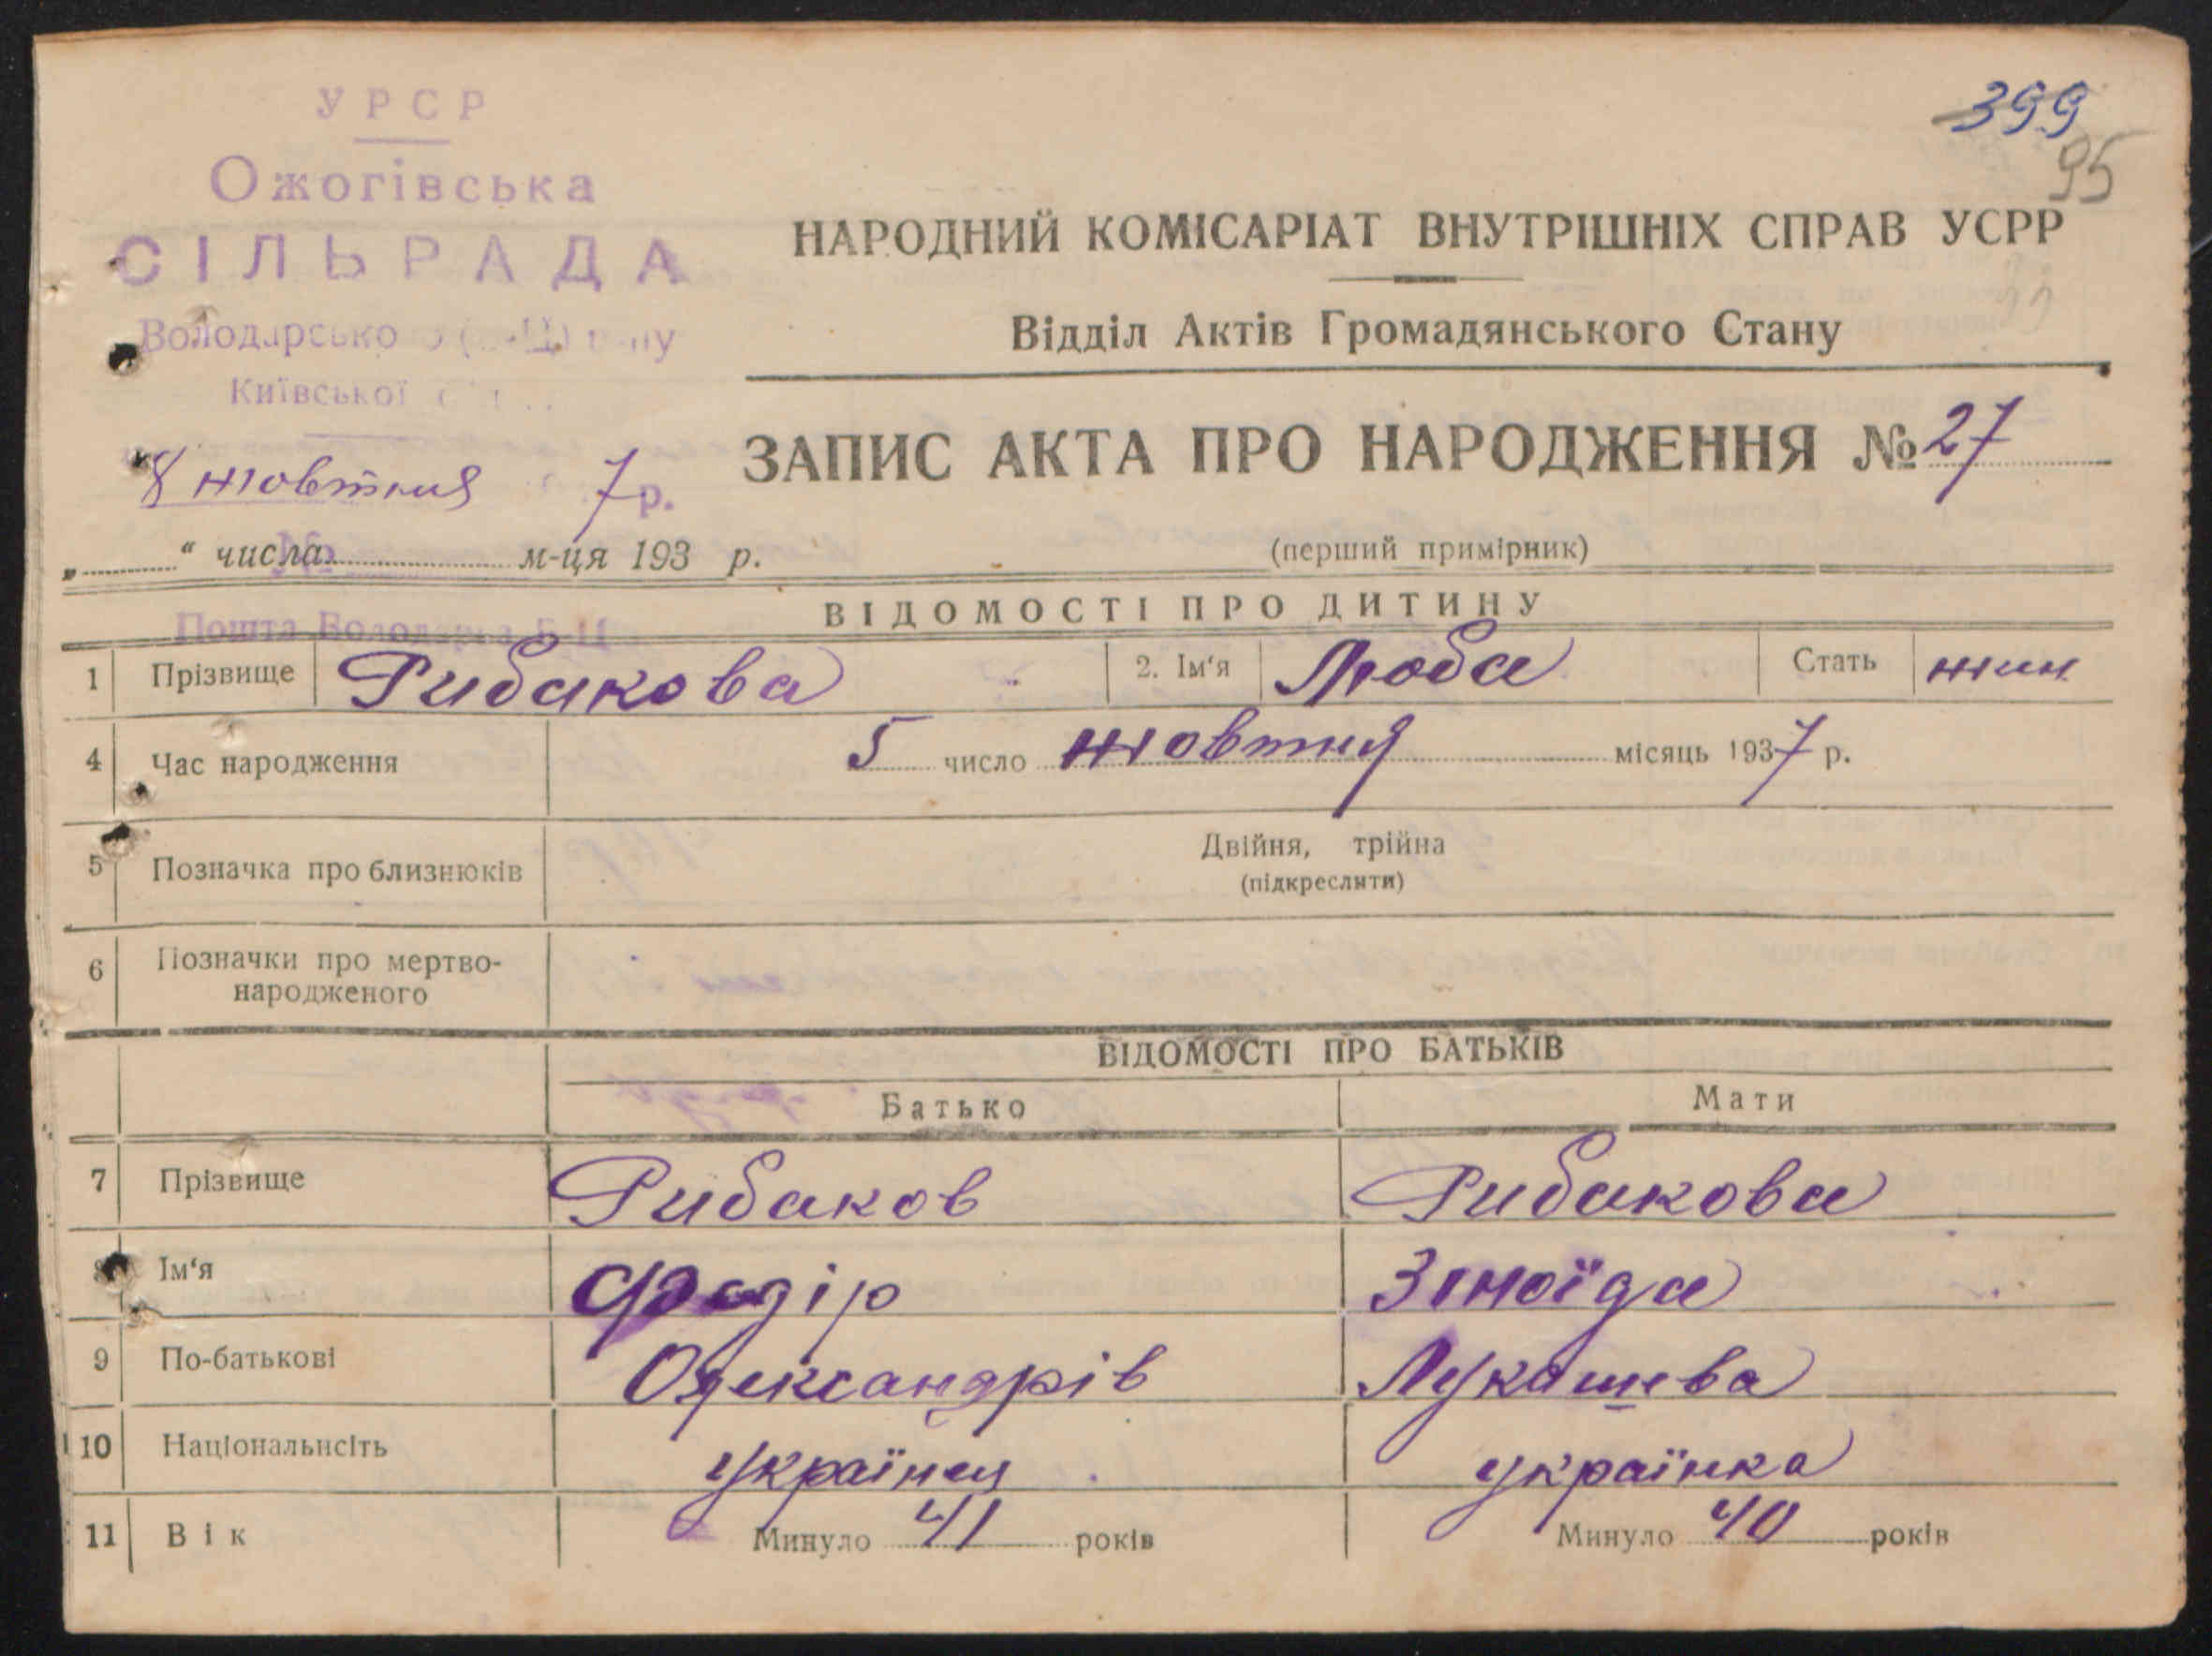 399
95
УРСР
Ожогівська
СІЛЬРАДА
Володарсько
Київської
8 жовтня 7 р.
№
Пошта Володарка Б-Ц
НАРОДНИЙ КОМІСАРІАТ ВНУТРІШНІХ СПРАВ УСРР
Відділ Актів Громадянського Стану
ЗАПИС АКТА ПРО НАРОДЖЕННЯ № 27
„ “ числа м-ця 193 р.
(перший примірник)
ВІДОМОСТІ ПРО ДИТИНУ
1 Прізвище Рибакова 2. Ім‘я Люба Стать жин
4 Час народження 5 число жовтня місяць 1937 р.
5 Позначка про близнюків Двійня, трійна
(підкреслити)
6 Позначки про мертво-
народженого
ВІДОМОСТІ ПРО БАТЬКІВ
Батько Мати
7 Прізвище Рибаков Рибакова
8 Ім‘я Федір Зіноїда
9 По-батькові Олександрів Лукашева
10 Національнсіть українец українка
11 Вік Минуло 41 років Минуло 40 років